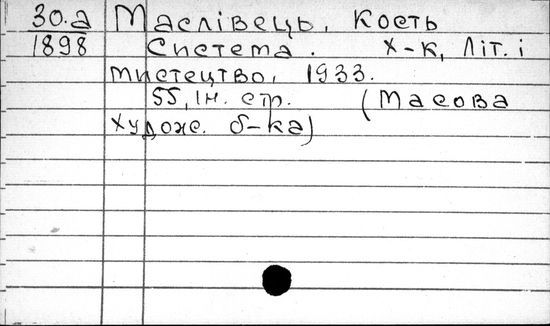 30.a Маслівець, Кость
1898 Система. Х-к, Літ. і
мистецтво, 1933.
55, Ін. стр. (Масова
худож. б-ка)